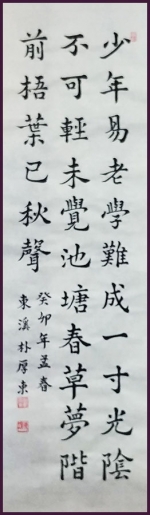 少年易老學難成一寸光陰
不可輕未覺池塘春草夢階
前梧葉已秋聲
癸卯年孟春
東溪朴厚東